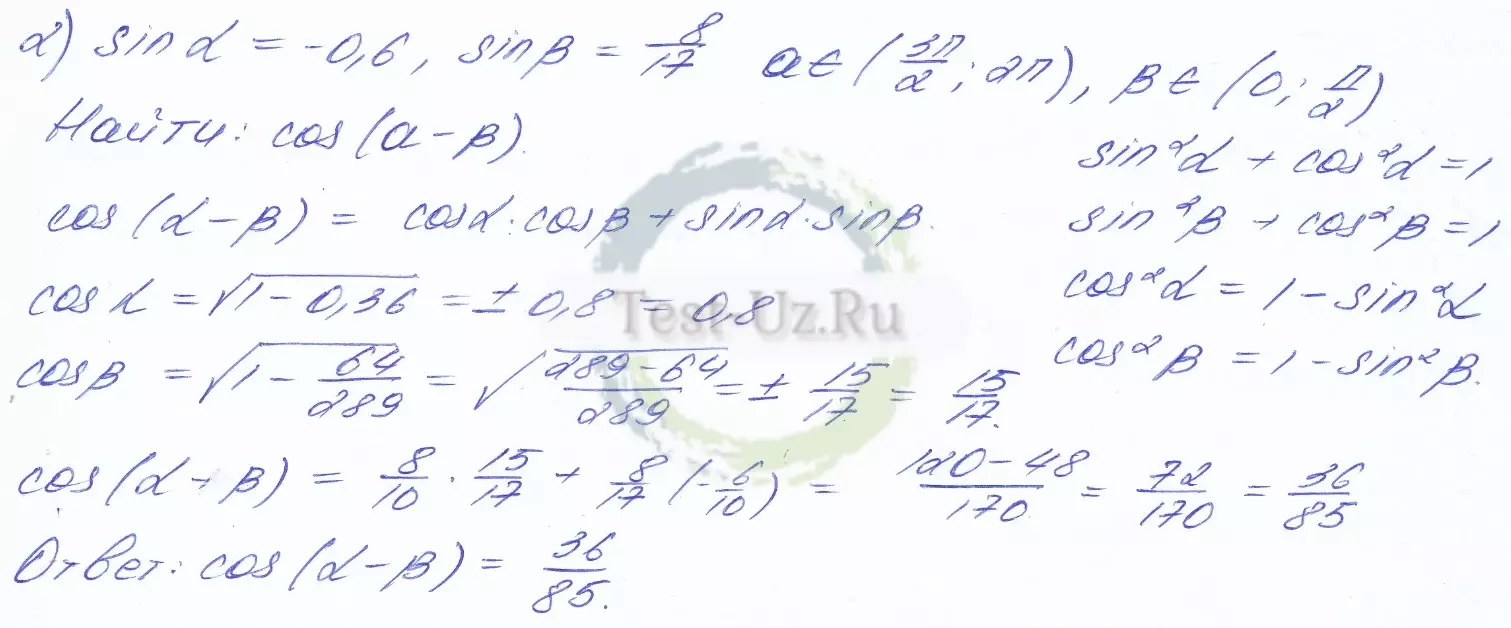 2) sin α = -0,6, sin β = 8/17 α ∈ (3π/2; 2π), β ∈ (0; π/2)
Найти: cos (α - β).
sin²α + cos²α = 1
cos (α - β) = cos α · cos β + sin α · sin β.
sin²β + cos²β = 1
cos α = √(1 - 0,36) = ± 0,8 = 0,8
cos²α = 1 - sin²α
Test-Uz.Ru
cos β = √(1 - 64/289) = √((289 - 64)/289) = ± 15/17 = 15/17.
cos²β = 1 - sin²β.
cos (α - β) = 8/10 · 15/17 + 8/17 (-6/10) = (120 - 48)/170 = 72/170 = 36/85
Ответ: cos (α - β) = 36/85.